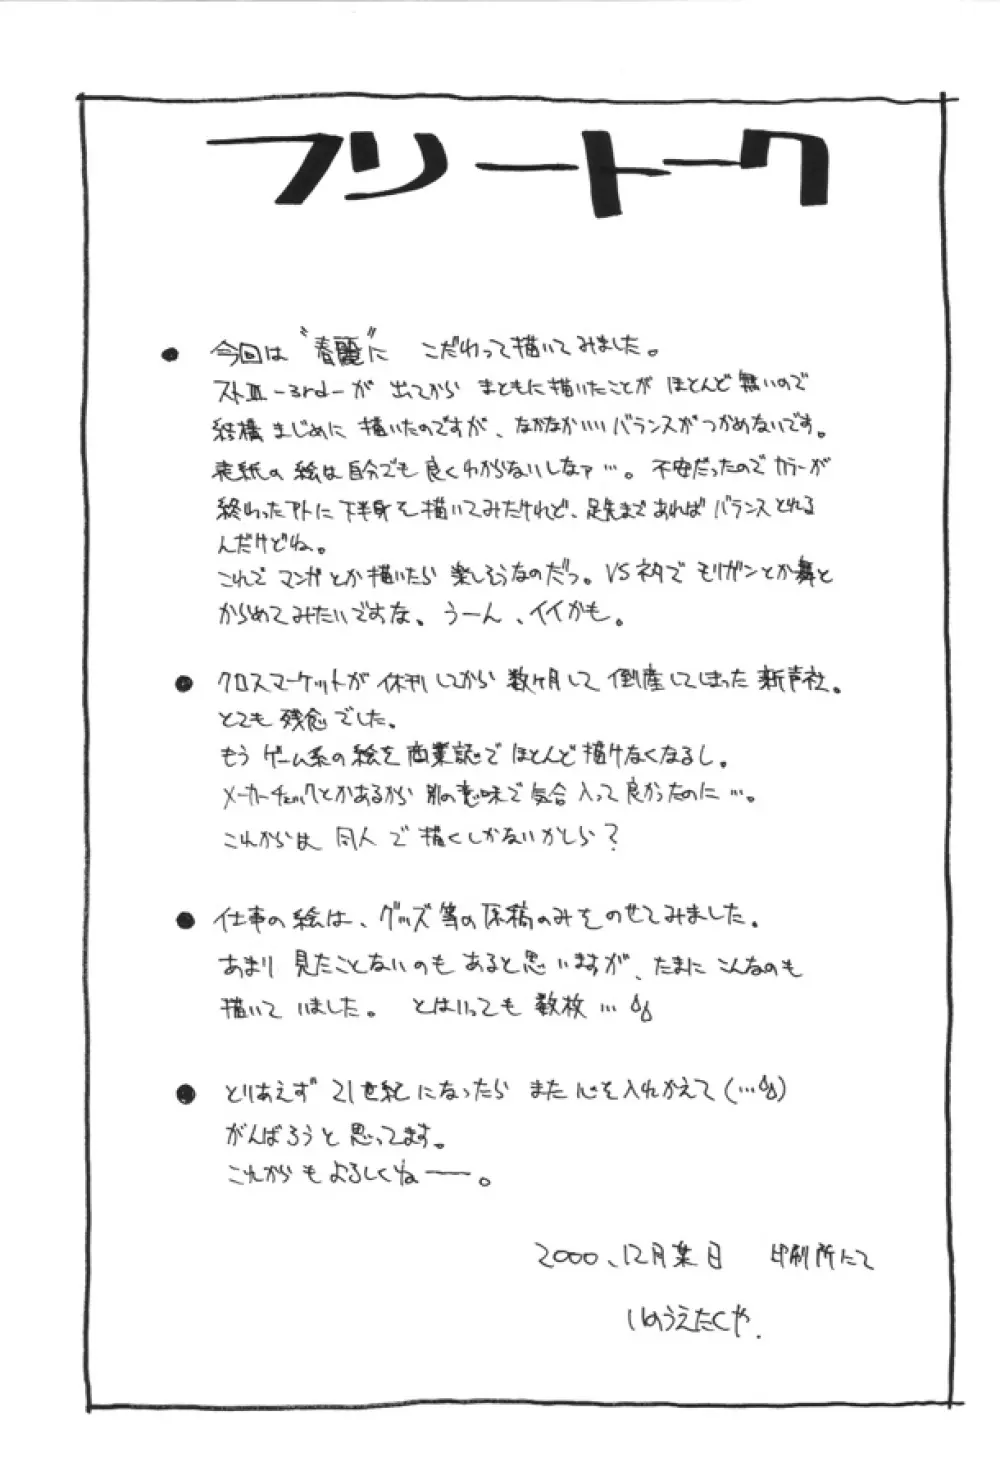 フリートーク
● 今回は“春麗”に こだわって描いてみました。
ストⅢ-3rd-が 出てから まともに描いたことが ほとんど無いので
結構まじめに 描いたのですが、なかなかいいバランスがつかめないです。
表紙の絵は自分でも良くわからないしなァ…。不安だったのでカラーが
終わったアトに下半身を描いてみたけれど、足先まであればバランスとれる
んだけどね。
これでマンガとか描いたら楽しそうなのだっ。VSネタでモリガンとか舞と
からめてみたいですな。うーん、イイかも。
● クロスマーケットが休刊してから数ヶ月して倒産してしまった新声社。
とても残念でした。
もうゲーム系の絵を商業誌でほとんど描けなくなるし。
メーカーチェックとかあるから別の意味で気合入って良かったのに…。
これからは同人で描くしかないかしら？
● 仕事の絵は、グッズ等の原稿のみをのせてみました。
あまり見たことないのもあると思いますが、たまにこんなのも
描いていました。 とはいっても数枚…
● とりあえず21世紀になったらまた心を入れかえて(…)
がんばろうと思ってます。
これからもよろしくねー。
2000、12月某日 印刷所にて
いのうえたくや.